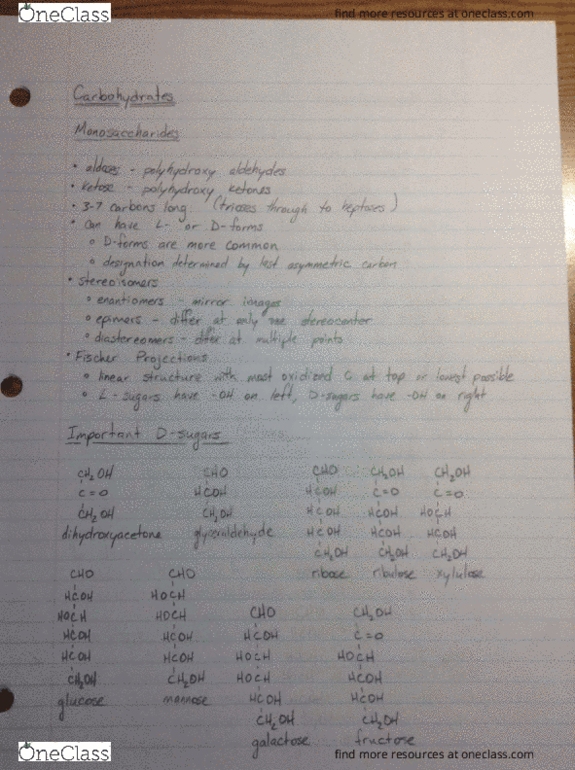 OneClass
find more resources at oneclass.com
Carbohydrates
Monosaccharides
• aldoses - polyhydroxy aldehydes
• ketose - polyhydroxy ketones
• 3-7 carbons long (trioses through to heptoses)
• can have L- or D-forms
o D-forms are more common
o designation determined by last asymmetric carbon
• stereoisomers
o enantiomers - mirror images
o epimers - differ at only one stereocenter
o diastereomers - differ at multiple points
• Fischer Projections
o linear structure with most oxidized C at top or lowest possible
o L-sugars have -OH on left, D-sugars have -OH on right
Important D-sugars
CH2OH CHO CHO CH2OH CH2OH
C=O HCOH HCOH C=O C=O
CH2OH CH2OH HCOH HCOH HOCH
dihydroxyacetone glyceraldehyde HCOH HCOH HCOH
CH2OH CH2OH CH2OH
ribose ribulose xylulose
CHO CHO
HCOH HOCH
HOCH HOCH CHO CH2OH
HCOH HCOH HCOH C=O
HCOH HCOH HOCH HOCH
CH2OH CH2OH HOCH HCOH
glucose mannose HCOH HCOH
CH2OH CH2OH
galactose fructose
OneClass
find more resources at oneclass.com